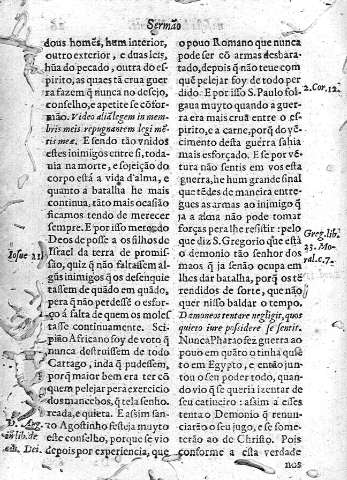 Sermão
dous homẽs, hum interior,
outro exterior, e duas leis,
hũa do pecado, outra do es-
pirito, as quaes tã crua guer
ra fazem q̃ nunca no desejo,
conselho, e apetite se cõfor-
mão. Video aliã legem in mem-
bris meis repugnantem legi mẽ-
tis meæ. E sendo tão vnidos
estes inimigos entre si, toda-
via na morte, e sojeição do
corpo está a vida d'alma, e
quanto a batalha he mais
continua, tãto mais ocasião
ficamos tendo de merecer
sempre. E por isso metẽdo
Deos de posse a os filhos de
Israel da terra de promis-
são, quiz q̃ não faltassem al-
gũs inimigos q̃ os desenquie
tassem de quãdo em quãdo,
pera q̃ não perdesse o esfor-
ço á falta de quem os moles
tasse continuamente. Sci-
pião Africano foy de voto q̃
nunca destruissem de todo
Cartago, inda q̃ pudessem,
porq̃ maior bem era ter cõ
quem pelejar pera exercicio
dos mancebos, q̃ tela senho-
reada, e quieta. E assim san-
to Agostinho festeja muyto
este conselho, porque se vio
depois por experiencia, que
Iosue 21
D. Aug.
in lib. de
Dei.
o pouo Romano que nunca
pode ser cõ armas desbara-
tado, depois q̃ não teue com
quẽ pelejar foy de todo per
dido. E por isso S. Paulo fol-
gaua muyto quando a guer-
ra era mais crua entre o es-
pirito, e a carne, porq̃ do vẽ-
cimento desta guerra sahia
mais esforçado. E se por vẽ-
tura não sentis em vos esta
guerra, he hum grande sinal
que tẽdes de maneira entre-
gues as armas ao inimigo q̃
já a alma não pode tomar
forças pera lhe resistir: pelo
que diz S. Gregorio que está
o demonio tão senhor dos
maos q̃ ja senão ocupa em
lhes dar batalha, porq̃ os tẽ
rendidos de sorte, que não
quer nisso baldar o tempo.
Dæmones tentare negligit, quos
quieto iure possidere se sentit.
Nunca Pharao fez guerra ao
pouo em quãto o tinha quie
to em Egypto, e então jun-
tou o seu poder todo, quan-
do vio q̃ se queria izentar de
seu catiueiro: assim a esses
tenta o Demonio q̃ renun-
ciarão o seu jugo, e se some-
terão ao de Christo. Pois
conforme a esta verdade
nos
2. Cor. 12.
Greg. lib.
25. Mo-
ral. c. 7.